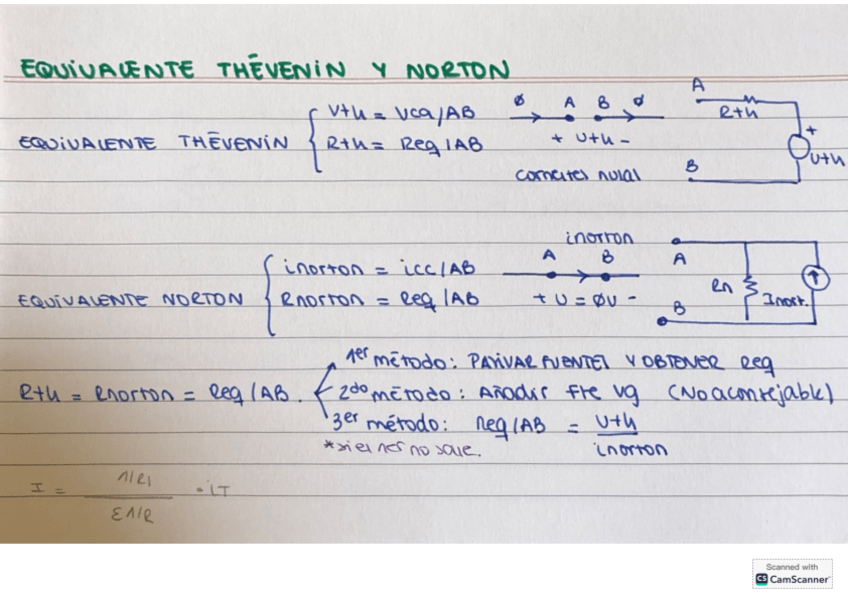 EQUIVALENTE THÉVENIN Y NORTON
EQUIVALENTE THÉVENIN
Vth = Vca/AB
Rth = Req/AB
ø A B ø
+ Vth -
corrientes nulas
A
Rth
+
Vth
B
EQUIVALENTE NORTON
inorton = icc/AB
Rnorton = Req/AB
inorton
A B
+ U = øV -
A
Rn
Inort.
B
Rth = Rnorton = Req/AB.
1er método: PASIVAR FUENTES Y OBTENER Req
2do método: Añadir fte vg (No aconsejable)
3er método: Req/AB = Vth / inorton
*si el 1er no sale.
I = 1/R1 / Σ1/R · iT
Scanned with
CS CamScanner